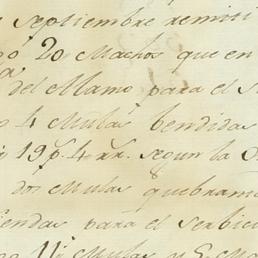 Septiembre remiti
20 Machos que en
del Alamo, para el
4 Mulas bendidas
19 p. 4 rr. segun la
dos Mulas quebram
para el serbici
11 Mulas y